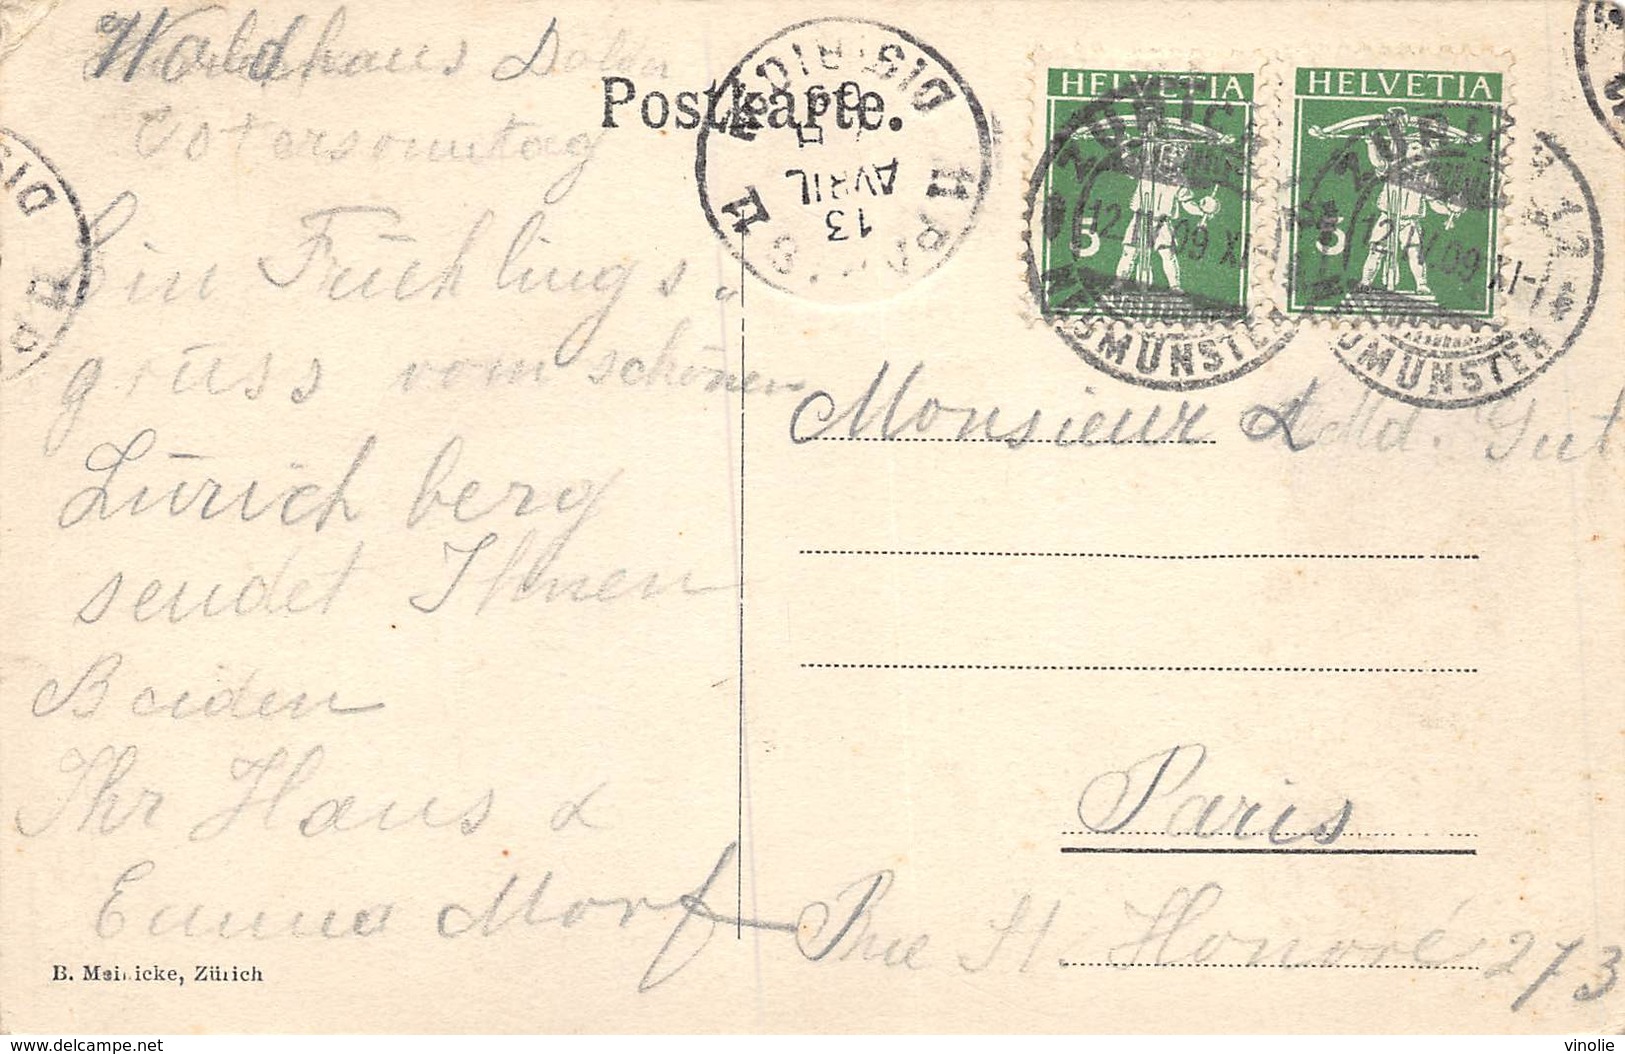 Waldhaus Dolder
Ostersonntag
Ein Frühlings„
gruss vom schönen
Zürich berg
sendet Ihnen
Beiden
Ihr Hans &
Emma Morf
B. Meinicke, Zürich
Postkarte.
PARIS
DISTRIBION
13
AVRIL
09
HELVETIA
5
HELVETIA
5
ZÜRICH
12.IV.09.XI-
ZÜRICH
12.IV.09.XI-
Monsieur Ad. Gut
Paris
Rue St. Honoré 273
delcampe.net
vinolie